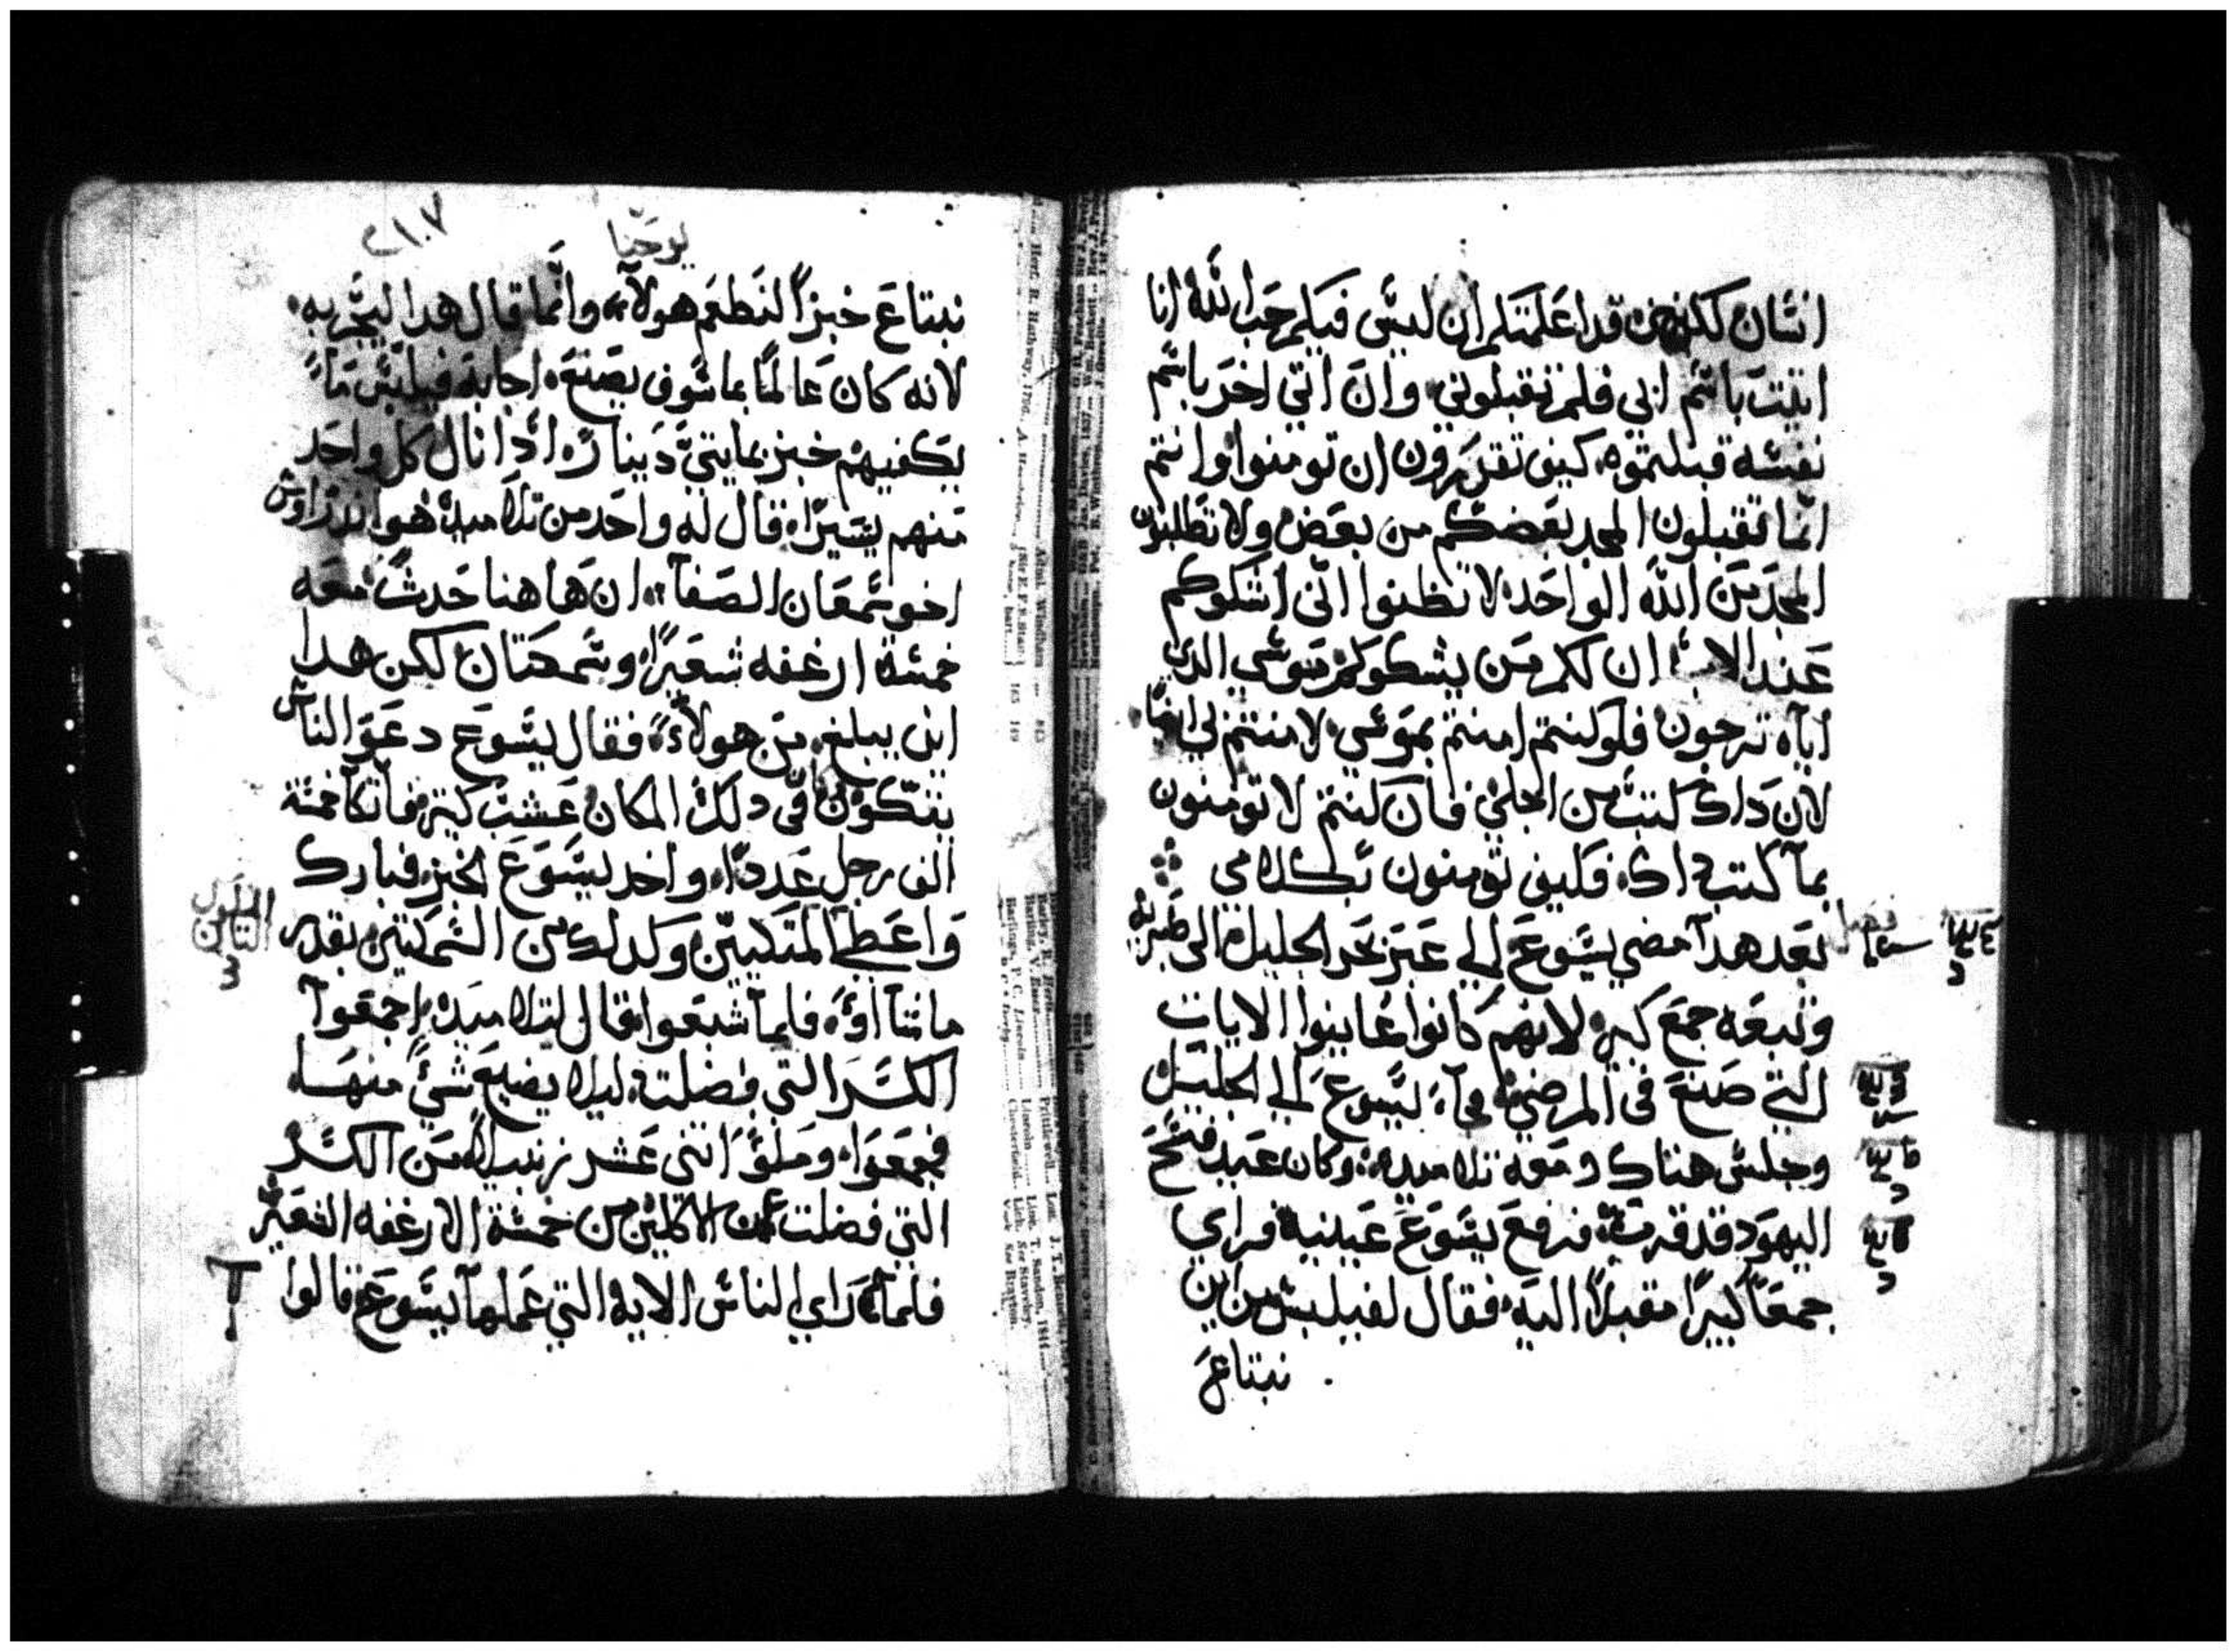 انسان لكن قد اعلمتكم ان ليس فيكم حب الله انا
اتيت باسم ابي فلم تقبلوني وان اتي اخر باسم
نفسه قبلتموه كيف تقدرون ان تومنوا وانتم
انما تقبلون المجد بعضكم من بعض ولا تطلبون
المجد من الله الواحد لا تظنوا اني اشكوكم
عند الاب ان لكم من يشكوكم موسي الدي
اياه ترجون فلو كنتم امنتم بموسي لامنتم لي
لان داك كتب من اجلي فان كنتم لا تومنون
بما كتب داك فكيف تومنون بكلامي
فصل
بعد هدا مضي يسوع الي عبر بحر الجليل الي طبريه
وتبعه جمع كبير لانهم كانوا عاينوا الايات
التي صنع في المرضي فجآء يسوع الي الجليل
وجلس هناك ومعه تلاميده وكان عيد فسح
اليهود قد قرب فرفع يسوع عينيه فراي
جمعًا كبيرًا مقبلاً اليه فقال لفيلبس من اين
نبتاع
يوحنا
٢١٠٧
نبتاع خبزاً لنطعم هولآء وانما قال هدا ليجربه
لانه كان عالمًا بما سوف يصنع اجابه فيلبس ما
يكفيهم خبز بمايتي دينار ادا نال كل واحد
منهم يسيرًا قال له واحد من تلاميده هو اندراوس
اخو سمعان الصفآ ان هاهنا حدث معه
خمسة ارغفه شعيرًا وسمكتان لكن هدا
اين يبلغ من هولآء فقال يسوع دعوا الناس
يتكون في دلك المكان عشب كثير فاتكا خمسة
الف رجل عددًا واخد يسوع الخبز فبارك
واعطي المتكيين وكدلك من السمكتين بقدر
ما شآاوء فلما شبعوا قال لتلاميده اجمعوا
الكسر التي فضلت ليلا يضيع شي منها
فجمعوا وملوا اثني عشر زنبيلا من الكسر
التي فضلت عن الاكلين من خمسة الارغفه الشعير
فلما راي الناس الايه التي عملها يسوع قالوا